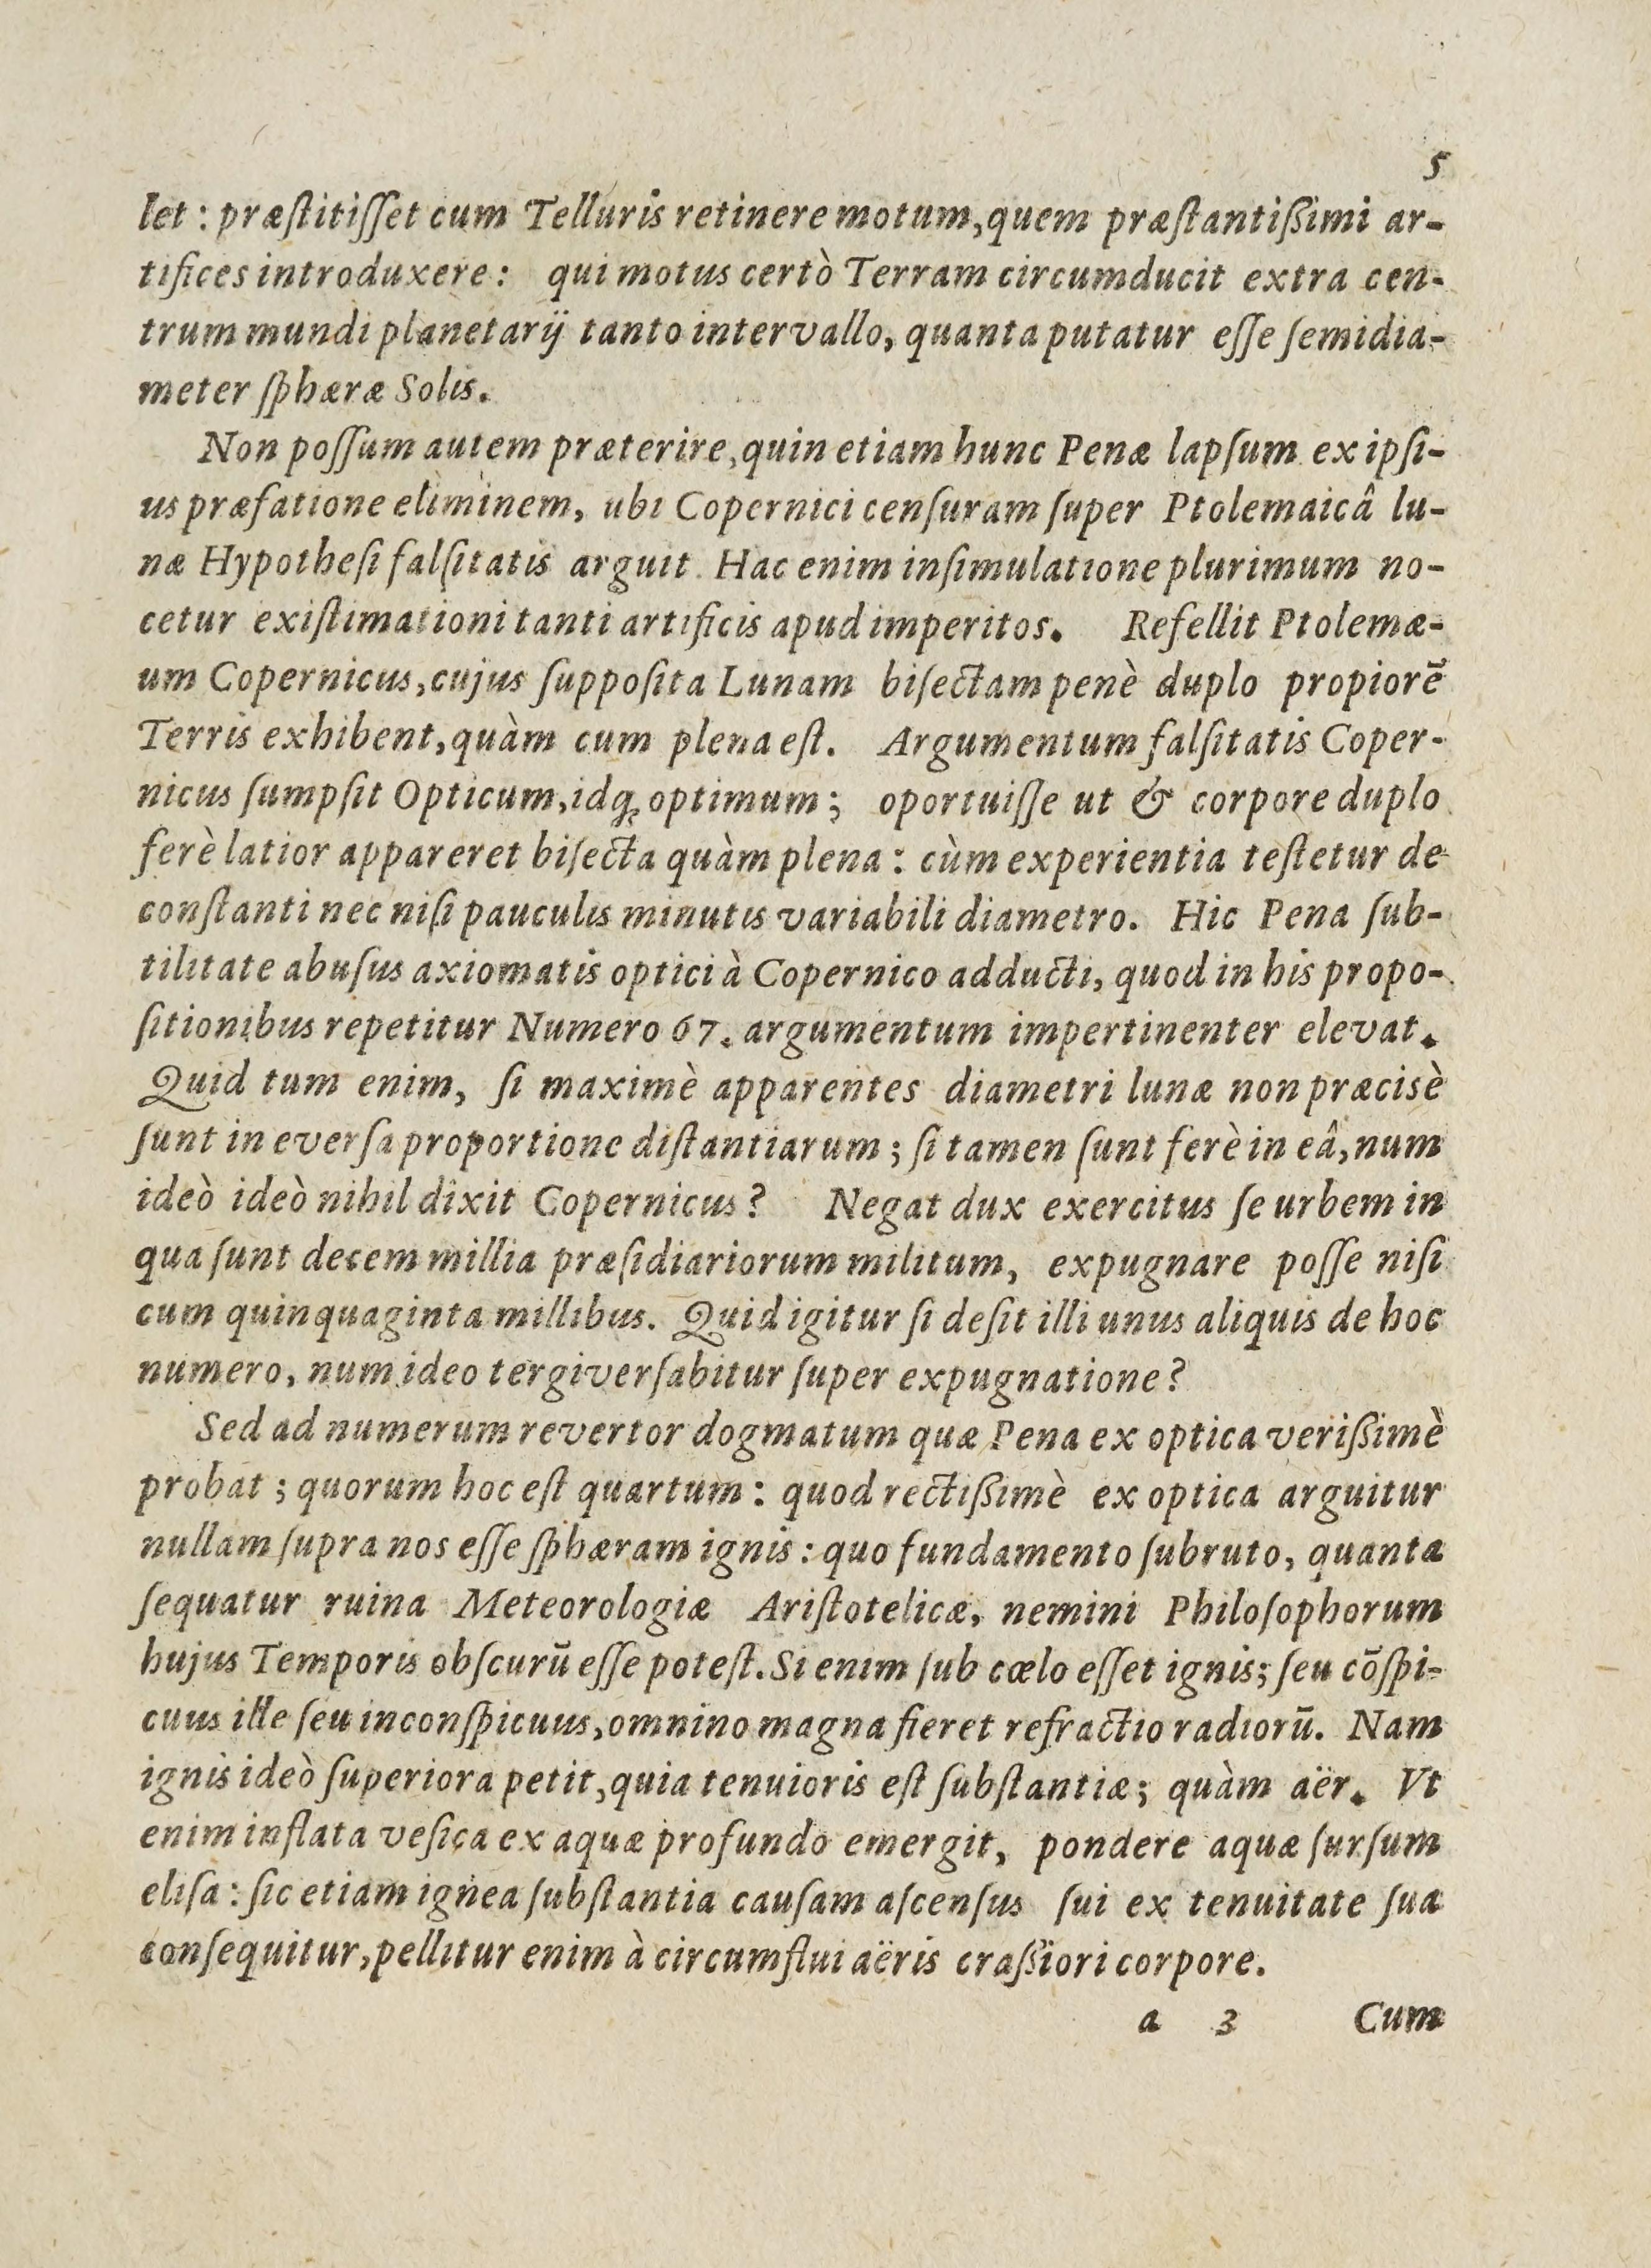 5
let: præſtitiſſet cum Telluris retinere motum, quem præſtantißimi ar-
tifices introduxere: qui motus certò Terram circumducit extra cen-
trum mundi planetarij tanto intervallo, quanta putatur eſſe ſemidia-
meter ſphæræ Solis.
Non poſſum autem præterire, quin etiam hunc Penæ lapſum ex ipſi-
us præfatione eliminem, ubi Copernici cenſuram ſuper Ptolemaicâ lu-
næ Hypotheſi falſitatis arguit. Hac enim inſimulatione plurimum no-
cetur exiſtimationi tanti artificis apud imperitos. Refellit Ptolemæ-
um Copernicus, cujus ſuppoſita Lunam biſectam penè duplo propiorē
Terris exhibent, quàm cum plena eſt. Argumentum falſitatis Coper-
nicus ſumpſit Opticum, idq́; optimum; oportuiſſe ut & corpore duplo
ferè latior appareret biſecta quàm plena: cùm experientia teſtetur de
conſtanti nec niſi pauculis minutis variabili diametro. Hic Pena ſub-
tilitate abuſus axiomatis optici à Copernico adducti, quod in his propo-
ſitionibus repetitur Numero 67. argumentum impertinenter elevat.
Quid tum enim, ſi maximè apparentes diametri lunæ non præcisè
ſunt in everſa proportione diſtantiarum; ſi tamen ſunt ferè in eâ, num
ideò ideò nihil dixit Copernicus? Negat dux exercitus ſe urbem in
qua ſunt decem millia præſidiariorum militum, expugnare poſſe niſi
cum quinquaginta millibus. Quid igitur ſi deſit illi unus aliquis de hoc
numero, num ideo tergiverſabitur ſuper expugnatione?
Sed ad numerum revertor dogmatum quæ Pena ex optica verißimè
probat; quorum hoc eſt quartum: quod rectißimè ex optica arguitur
nullam ſupra nos eſſe ſphæram ignis: quo fundamento ſubruto, quanta
ſequatur ruina Meteorologiæ Ariſtotelicæ, nemini Philoſophorum
hujus Temporis obſcurū eſſe poteſt. Si enim ſub cœlo eſſet ignis; ſeu cōſpi-
cuus ille ſeu inconſpicuus, omnino magna fieret refractio radiorū. Nam
ignis ideò ſuperiora petit, quia tenuioris eſt ſubſtantiæ; quàm aër. Vt
enim inflata veſica ex aquæ profundo emergit, pondere aquæ ſurſum
eliſa: ſic etiam ignea ſubſtantia cauſam aſcenſus ſui ex tenuitate ſua
conſequitur, pellitur enim à circumflui aëris craßiori corpore.
a 3 Cum